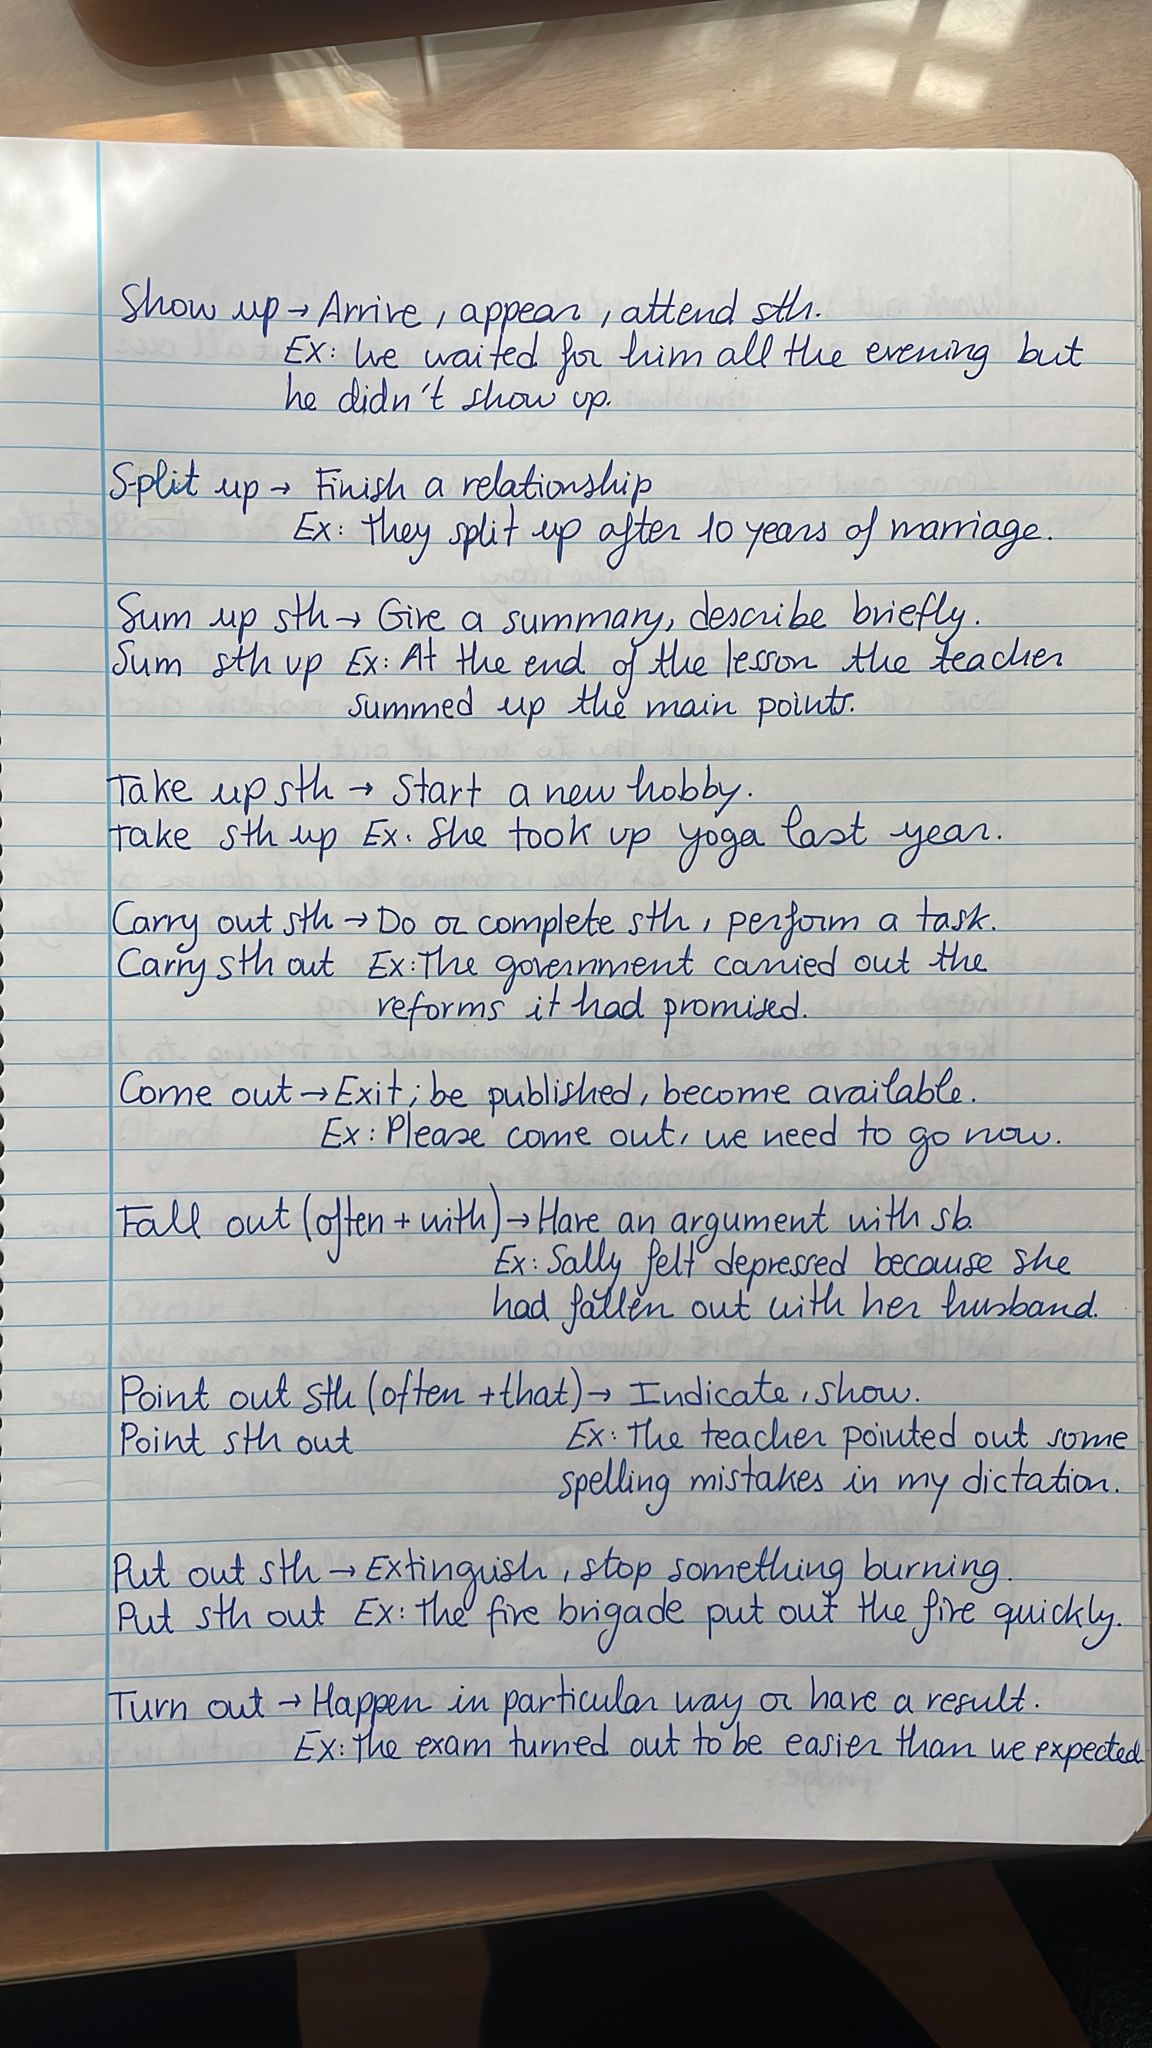 Show up → Arrive, appear, attend sth.
Ex: We waited for him all the evening but
he didn't show up.
Split up → Finish a relationship
Ex: They split up after 10 years of marriage.
Sum up sth → Give a summary, describe briefly.
Sum sth up Ex: At the end of the lesson the teacher
summed up the main points.
Take up sth → Start a new hobby.
Take sth up Ex: She took up yoga last year.
Carry out sth → Do or complete sth, perform a task.
Carry sth out Ex: The government carried out the
reforms it had promised.
Come out → Exit; be published, become available.
Ex: Please come out, we need to go now.
Fall out (often + with) → Have an argument with sb.
Ex: Sally felt depressed because she
had fallen out with her husband.
Point out sth (often + that) → Indicate, show.
Point sth out Ex: The teacher pointed out some
spelling mistakes in my dictation.
Put out sth → Extinguish, stop something burning.
Put sth out Ex: The fire brigade put out the fire quickly.
Turn out → Happen in particular way or have a result.
Ex: The exam turned out to be easier than we expected